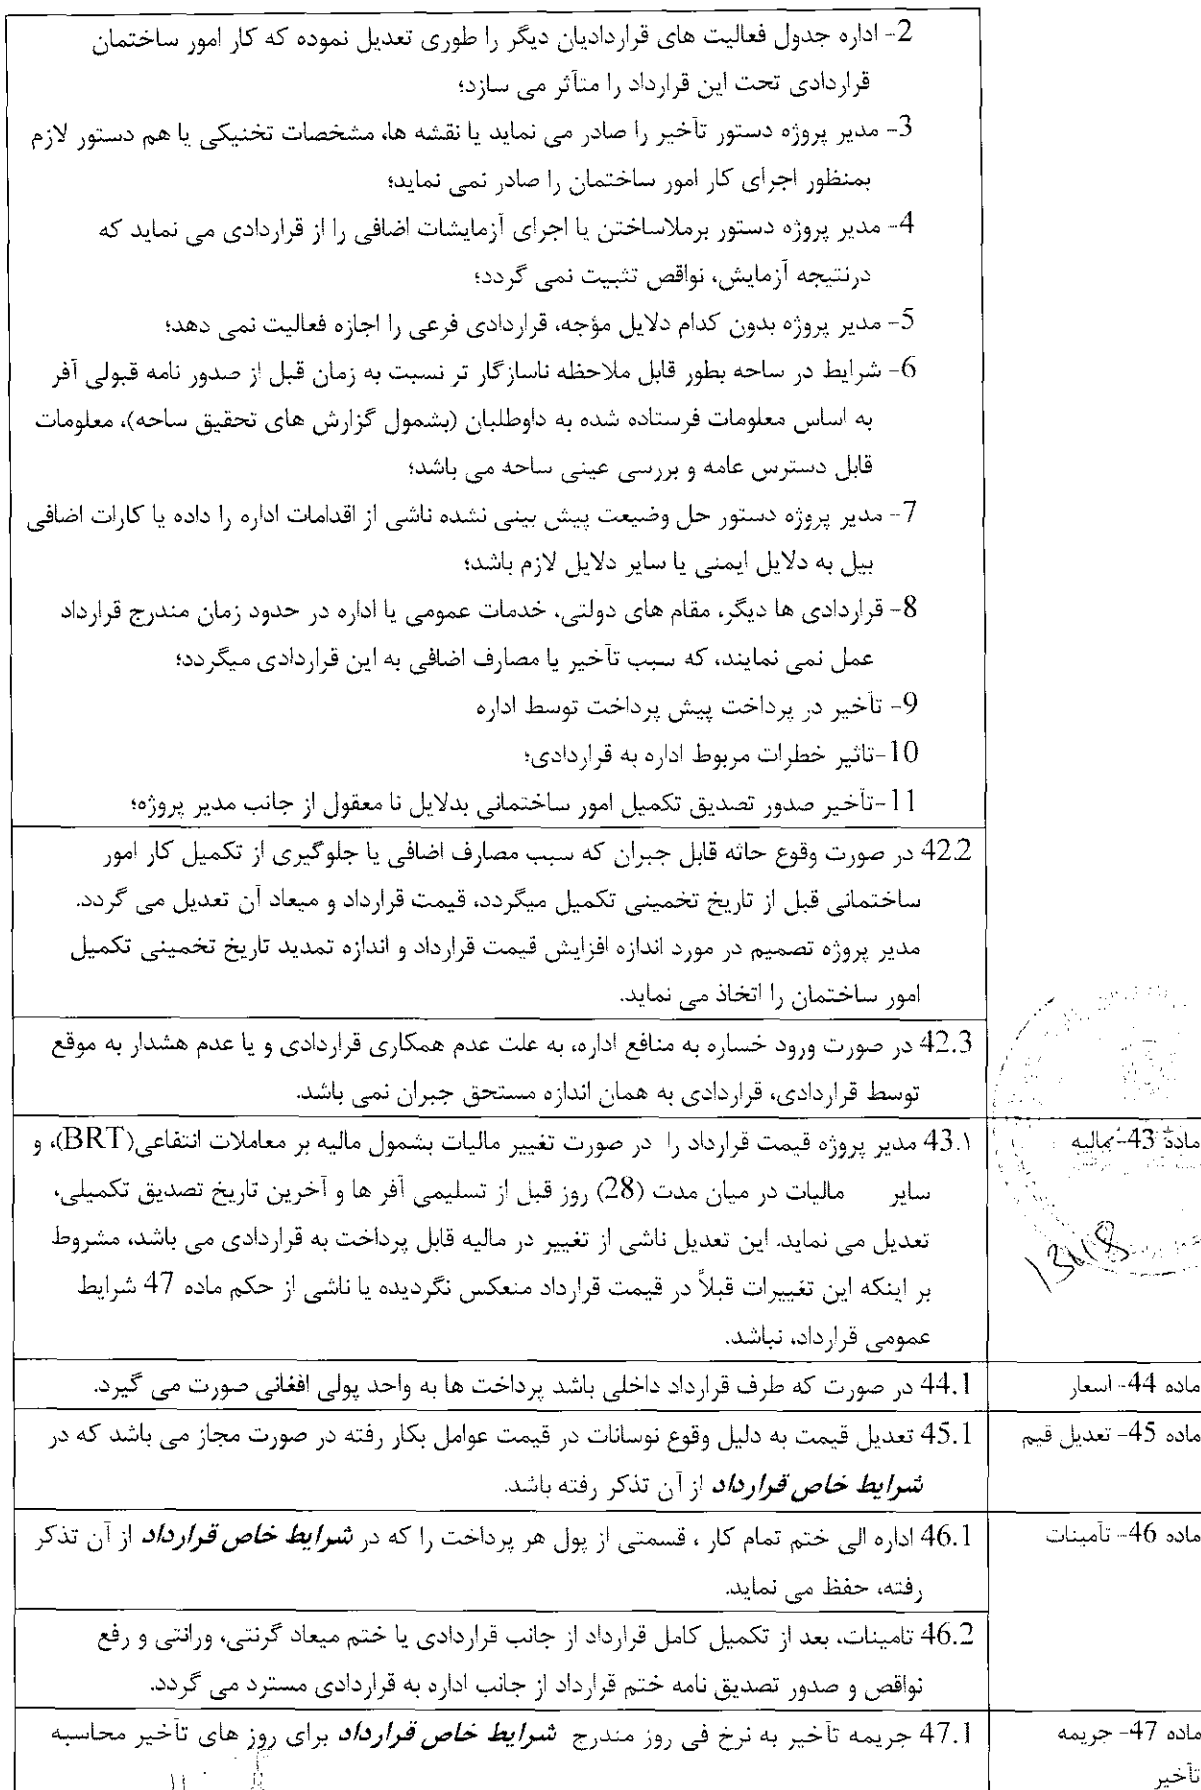 2- اداره جدول فعالیت های قراردادیان دیگر را طوری تعدیل نموده که کار امور ساختمان
قراردادی تحت این قرارداد را متأثر می سازد؛
3- مدیر پروژه دستور تأخیر را صادر می نماید یا نقشه ها، مشخصات تخنیکی یا هم دستور لازم
بمنظور اجرای کار امور ساختمان را صادر نمی نماید؛
4- مدیر پروژه دستور برملاساختن یا اجرای آزمایشات اضافی را از قراردادی می نماید که
درنتیجه آزمایش، نواقص تثبیت نمی گردد؛
5- مدیر پروژه بدون کدام دلایل مؤجه، قراردادی فرعی را اجازه فعالیت نمی دهد؛
6- شرایط در ساحه بطور قابل ملاحظه ناسازگار تر نسبت به زمان قبل از صدور نامه قبولی آفر
به اساس معلومات فرستاده شده به داوطلبان (بشمول گزارش های تحقیق ساحه)، معلومات
قابل دسترس عامه و بررسی عینی ساحه می باشد؛
7- مدیر پروژه دستور حل وضیعت پیش بینی نشده ناشی از اقدامات اداره را داده یا کارات اضافی
بیل به دلایل ایمنی یا سایر دلایل لازم باشد؛
8- قراردادی ها دیگر، مقام های دولتی، خدمات عمومی یا اداره در حدود زمان مندرج قرارداد
عمل نمی نمایند، که سبب تأخیر یا مصارف اضافی به این قراردادی میگردد؛
9- تأخیر در پرداخت پیش پرداخت توسط اداره
10-تاثیر خطرات مربوط اداره به قراردادی؛
11-تأخیر صدور تصدیق تکمیل امور ساختمانی بدلایل نا معقول از جانب مدیر پروژه؛
42.2 در صورت وقوع حاثه قابل جبران که سبب مصارف اضافی یا جلوگیری از تکمیل کار امور
ساختمانی قبل از تاریخ تخمینی تکمیل میگردد، قیمت قرارداد و میعاد آن تعدیل می گردد.
مدیر پروژه تصمیم در مورد اندازه افزایش قیمت قرارداد و اندازه تمدید تاریخ تخمینی تکمیل
امور ساختمان را اتخاذ می نماید.
42.3 در صورت ورود خساره به منافع اداره، به علت عدم همکاری قراردادی و یا عدم هشدار به موقع
توسط قراردادی، قراردادی به همان اندازه مستحق جبران نمی باشد.
ماده 43- مالیه
43.۱ مدیر پروژه قیمت قرارداد را در صورت تغییر مالیات بشمول مالیه بر معاملات انتفاعی(BRT)، و
سایر مالیات در میان مدت (28) روز قبل از تسلیمی آفر ها و آخرین تاریخ تصدیق تکمیلی،
تعدیل می نماید. این تعدیل ناشی از تغییر در مالیه قابل پرداخت به قراردادی می باشد، مشروط
بر اینکه این تغییرات قبلاً در قیمت قرارداد منعکس نگردیده یا ناشی از حکم ماده 47 شرایط
عمومی قرارداد، نباشد.
ماده 44- اسعار
44.1 در صورت که طرف قرارداد داخلی باشد پرداخت ها به واحد پولی افغانی صورت می گیرد.
ماده 45- تعدیل قیم
45.1 تعدیل قیمت به دلیل وقوع نوسانات در قیمت عوامل بکار رفته در صورت مجاز می باشد که در
شرایط خاص قرارداد از آن تذکر رفته باشد.
ماده 46- تأمینات
46.1 اداره الی ختم تمام کار ، قسمتی از پول هر پرداخت را که در شرایط خاص قرارداد از آن تذکر
رفته، حفظ می نماید.
46.2 تامینات، بعد از تکمیل کامل قرارداد از جانب قراردادی یا ختم میعاد گرنتی، ورانتی و رفع
نواقص و صدور تصدیق نامه ختم قرارداد از جانب اداره به قراردادی مسترد می گردد.
ماده 47- جریمه
تأخیر
47.1 جریمه تأخیر به نرخ فی روز مندرج شرایط خاص قرارداد برای روز های تأخیر محاسبه